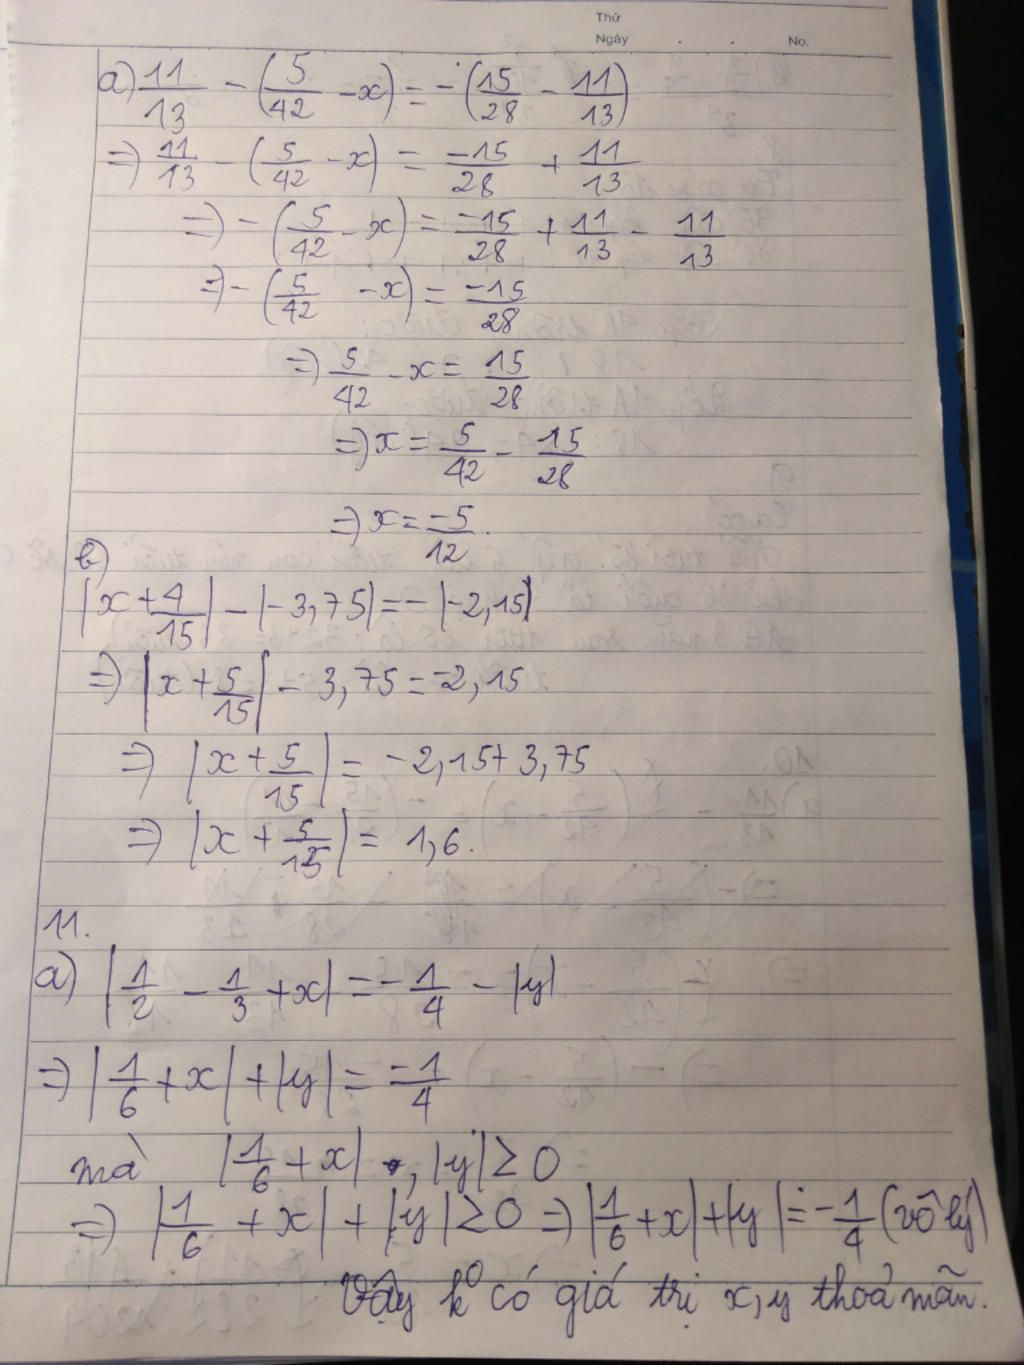 Thứ
Ngày . . No.
a) 11/13 - (5/42 - x) = -(15/28 - 11/13)
=> 11/13 - (5/42 - x) = -15/28 + 11/13
=> - (5/42 - x) = -15/28 + 11/13 - 11/13
=> - (5/42 - x) = -15/28
=> 5/42 - x = 15/28
=> x = 5/42 - 15/28
=> x = -5/12.
b)
|x + 4/15| - |-3,75| = - |-2,15|
=> |x + 5/15| - 3,75 = -2,15
=> |x + 5/15| = -2,15 + 3,75
=> |x + 5/15| = 1,6.
11.
a) |1/2 - 1/3 + x| = -1/4 - |y|
=> |1/6 + x| + |y| = -1/4
mà |1/6 + x| , |y| ≥ 0
=> |1/6 + x| + |y| ≥ 0 => |1/6 + x| + |y| = -1/4 (vô lý)
Vậy k⁰ có giá trị x, y thoả mãn.